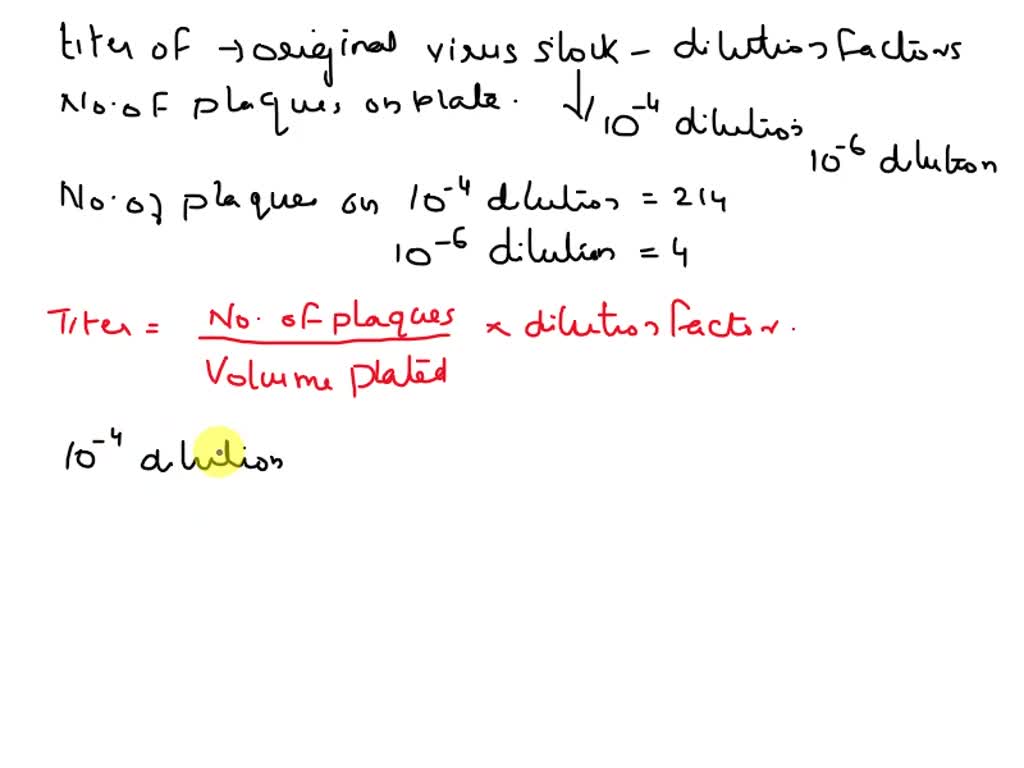 titer of → original virus stock - dilution factors
No. of plaques on plate. ↓ 10⁻⁴ dilution
10⁻⁶ dilution
No. of plaques on 10⁻⁴ dilution = 214
10⁻⁶ dilution = 4
Titer = No. of plaques × dilution factor.
Volume plated
10⁻⁴ dilution